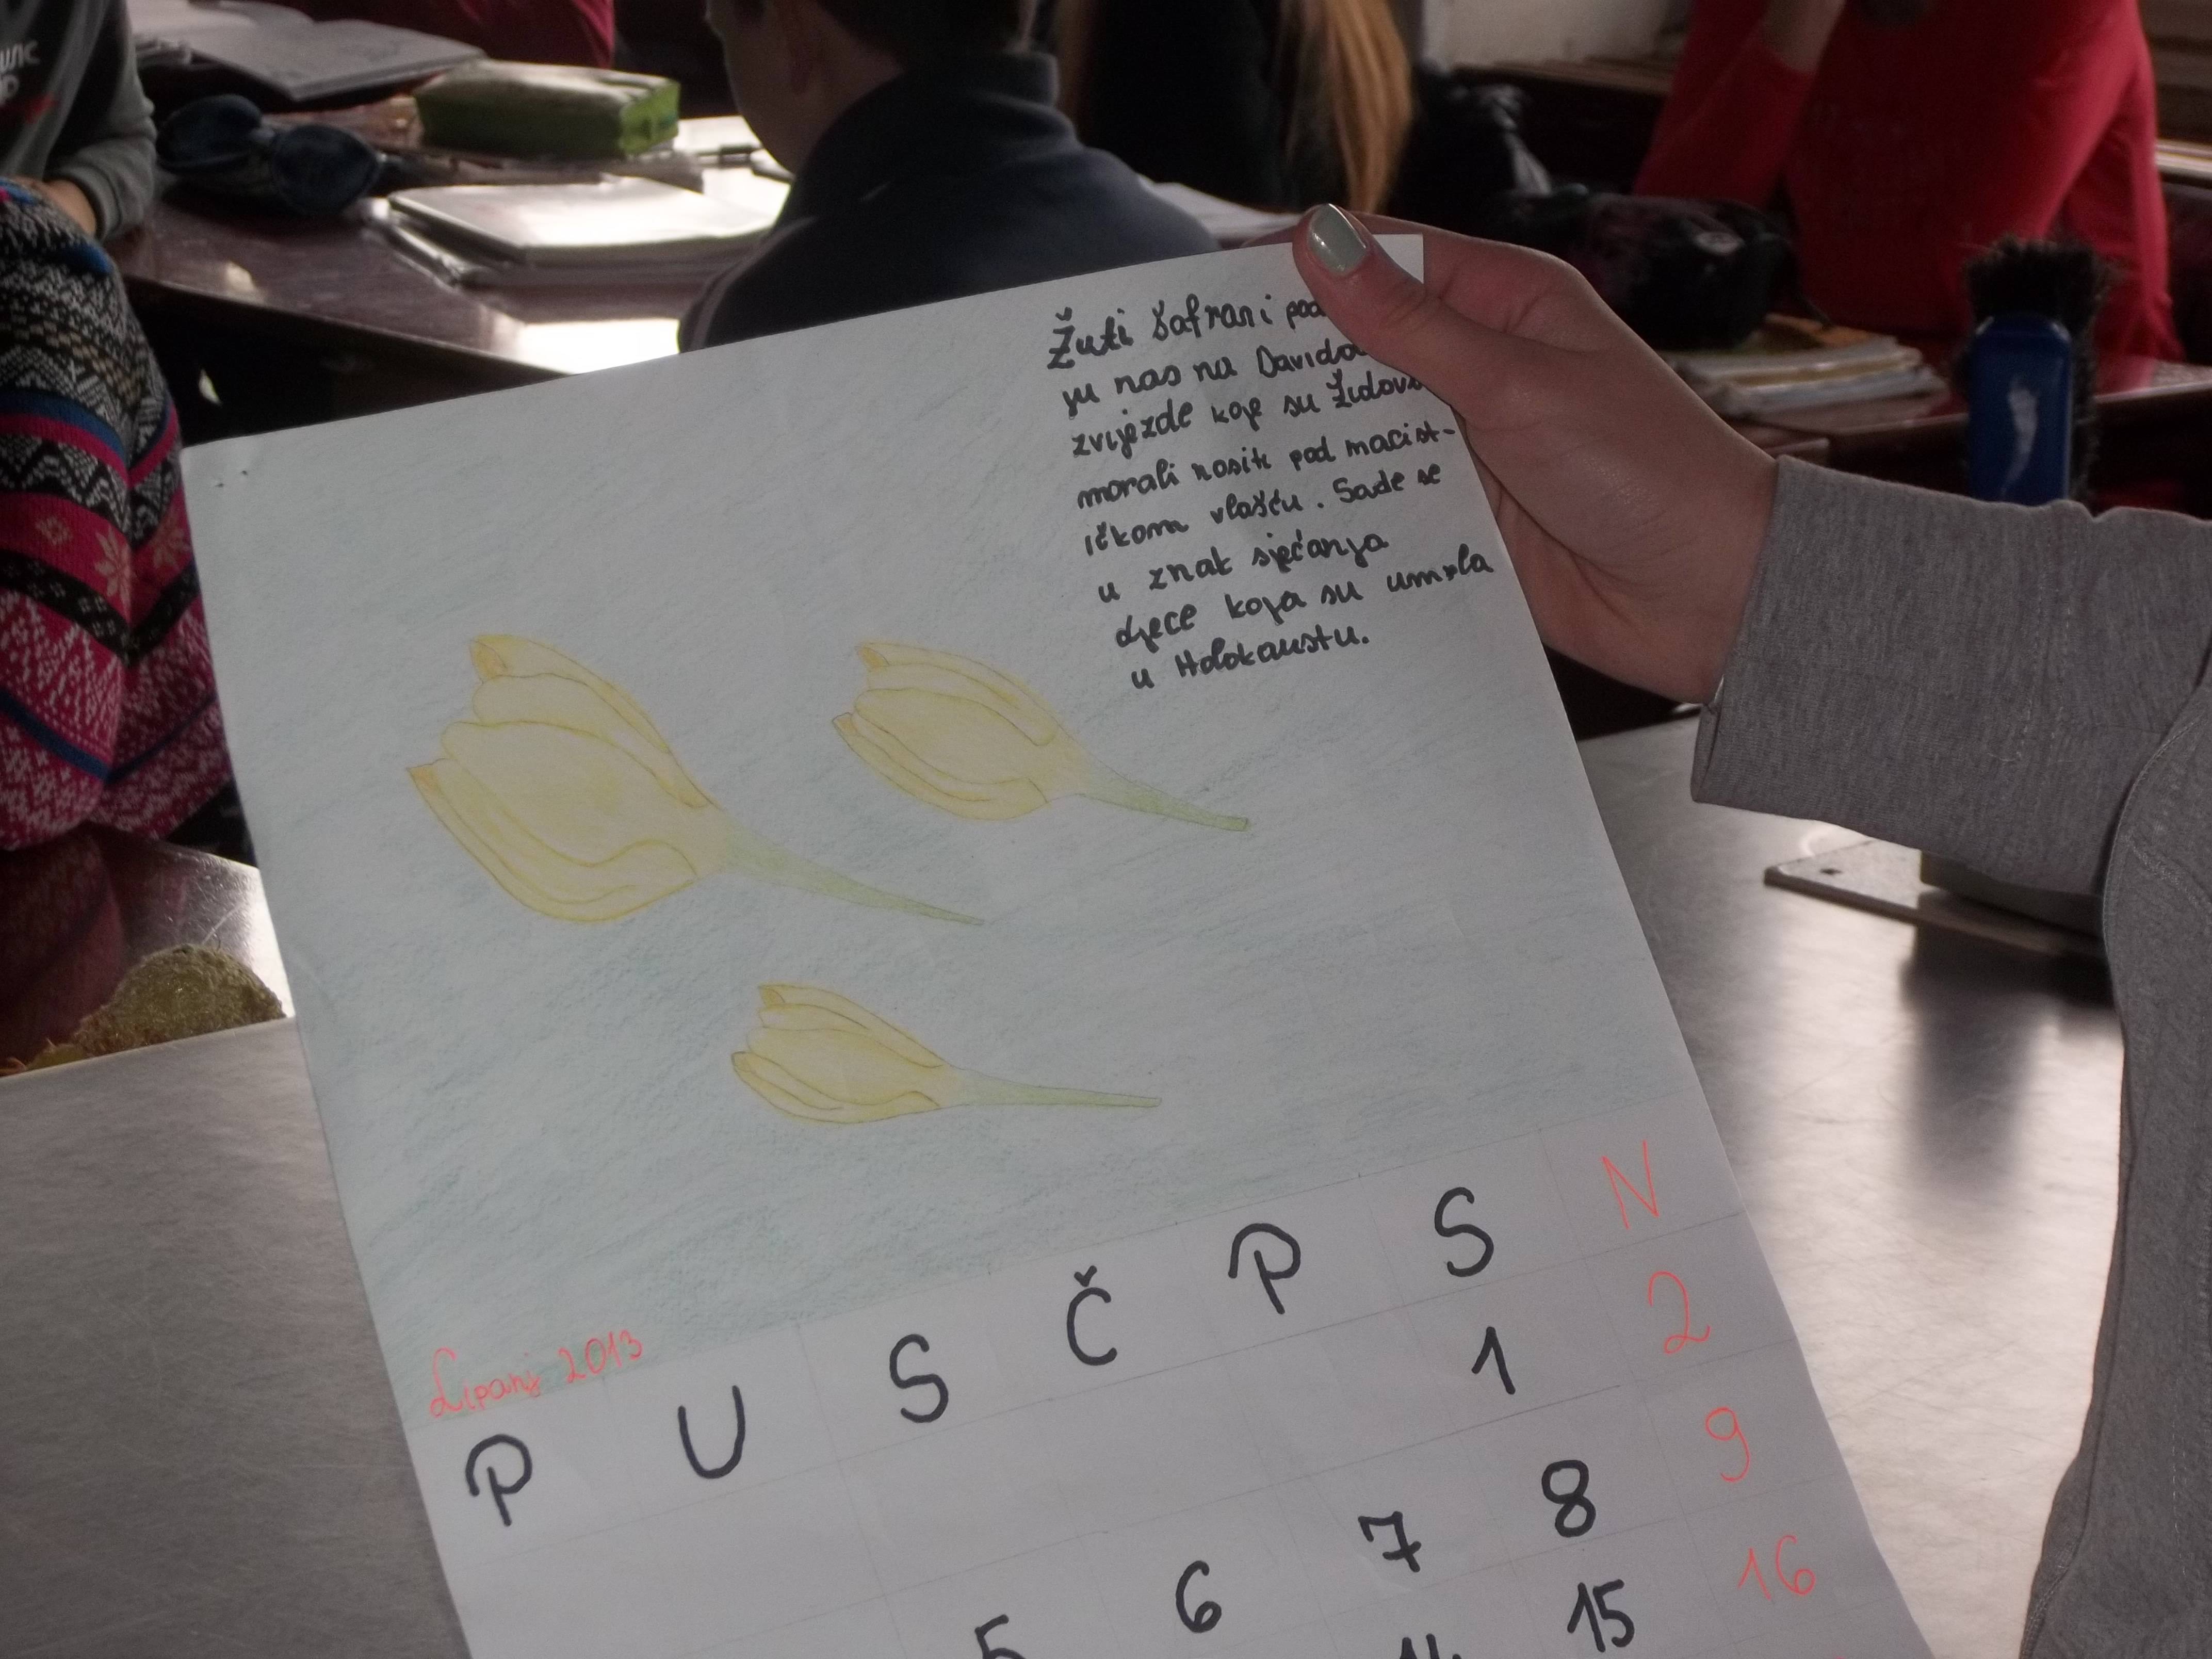 Žuti šafrani pod
ju nas na Davido
zvijezde koje su Židov
morali nositi pod macist-
ičkom vlašću. Sade se
u znak sjećanja
djece koja su umrla
u Holokaustu.
Lipanj 2013
P U S Č P S N
1 2
5 6 7 8 9
14 15 16